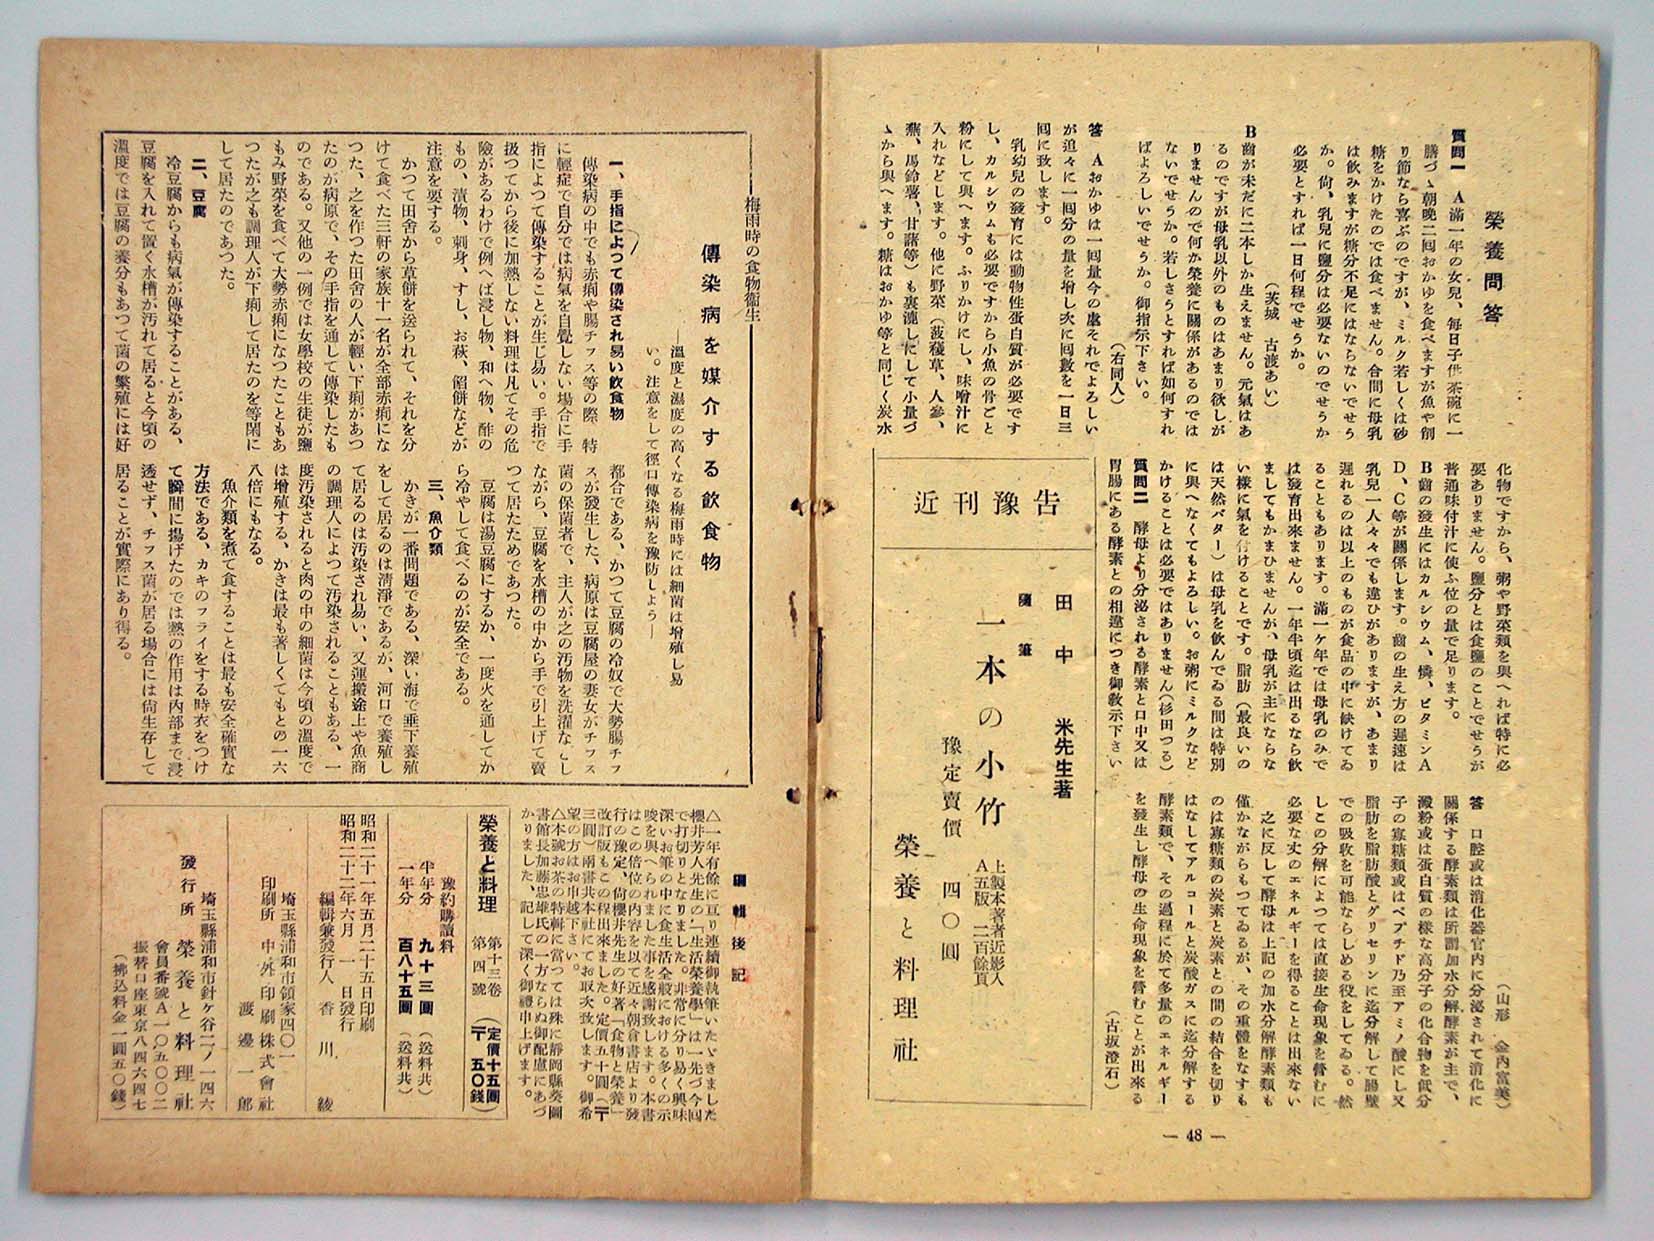 榮養問答
質問一　A滿一年の女兒、每日子供茶碗に一
膳づゝ朝晩二囘おかゆを食べますが魚や創
り節なら喜ぶのですが、ミルク若しくは砂
糖をかけたのでは食べません。合間に母乳
は飲みますが糖分不足にはならないでせう
か。尙、乳兒に鹽分は必要ないのでせうか
必要とすれば一日何程でせうか。
（茨城　古渡あい）
B齒が未だに二本しか生えません。元氣はあ
るのですが母乳以外のものはあまり欲しが
りませんので何か榮養に關係があるのでは
ないでせうか。若しさうとすれば如何すれ
ばよろしいでせうか。御指示下さい。
（右同人）
答　Aおかゆは一囘量今の處それでよろしい
が追々に一囘分の量を增し次に囘數を一日三
囘に致します。
乳幼兒の發育には動物性蛋白質が必要です
し、カルシウムも必要ですから小魚の骨ごと
粉にして與へます。ふりかけにし、味噌汁に
入れなどします。他に野菜（菠薐草、人參、
蕪、馬鈴薯、甘藷等）も裏漉しにして小量づ
ゝから與へます。糖はおかゆ等と同じく炭水
化物ですから、粥や野菜類を與へれば特に必
要ありません。鹽分とは食鹽のことでせうが
普通味付汁に使ふ位の量で足ります。
B齒の發生にはカルシウム、燐、ビタミンA
D、C等が關係します。齒の生え方の遲速は
乳兒一人々々でも違ひがありますが、あまり
遲れるのは以上のものが食品の中に缺けてゐ
ることもあります。滿一ケ年では母乳のみで
は發育出來ません。一年半頃迄は出るなら飲
ましてもかまひませんが、母乳が主にならな
い樣に氣を付けることです。脂肪（最良いの
は天然バター）は母乳を飲んでゐる間は特別
に與へなくてもよろしい。お粥にミルクなど
かけることは必要ではありません（杉田つる）
質問二　酵母より分泌される酵素と口中又は
胃腸にある酵素との相違につき御敎示下さい
（山形　金內富美）
答　口腔或は消化器官內に分泌されて消化に
關係する酵素類は所謂加水分解酵素が主で、
澱粉或は蛋白質の樣な高分子の化合物を低分
子の寡糖類或はペプチド乃至アミノ酸にし又
脂肪を脂肪酸とグリセリンに迄分解して腸壁
での吸收を可能ならしめる役をしてゐる。然
しこの分解によつては直接生命現象を營むに
必要な丈のエネルギーを得ることは出來ない
之に反して酵母は上記の加水分解酵素類も
僅かながらもつてゐるが、その重體をなすも
のは寡糖類の炭素と炭素との間の結合を切り
はなしてアルコールと炭酸ガスに迄分解する
酵素類で、その過程に於て多量のエネルギー
を發生し酵母の生命現象を營むことが出來る
（古坂澄石）
近刊豫告
田中　米先生著
隨筆
一本の小竹
上製本著者近影入
A五版　二百餘頁
豫定賣價　四〇圓
榮養と料理社
― 48 ―
―梅雨時の食物衞生―
傳染病を媒介する飲食物
―溫度と濕度の高くなる梅雨時には細菌は增殖し易
い。注意をして徑口傳染病を豫防しよう―
一、手指によつて傳染され易い飲食物
傳染病の中でも赤痢や腸チフス等の際　特
に輕症で自分では病氣を自覺しない場合に手
指によつて傳染することが生じ易い。手指で
扱つてから後に加熱しない料理は凡てその危
險があるわけで例へば浸し物、和へ物、酢の
もの、漬物、刺身、すし、お萩、餡餅などが
注意を要する。
かつて田舍から草餅を送られて、それを分
けて食べた三軒の家族十一名が全部赤痢にな
つた、之を作つた田舍の人が輕い下痢があつ
たのが病原で、その手指を通して傳染したも
のである。又他の一例では女學校の生徒が鹽
もみ野菜を食べて大勢赤痢になつたこともあ
つたが之も調理人が下痢して居たのを等閑に
して居たのであつた。
二、豆腐
冷豆腐からも病氣が傳染することがある、
豆腐を入れて置く水槽が汚れて居ると今頃の
溫度では豆腐の養分もあつて菌の繁殖には好
都合である、かつて豆腐の冷奴で大勢腸チフ
スが發生した、病原は豆腐屋の妻女がチフス
菌の保菌者で、主人が之の汚物を洗濯などし
ながら、豆腐を水槽の中から手で引上げて賣
つて居たためであつた。
豆腐は湯豆腐にするか、一度火を通してか
ら冷やして食べるのが安全である。
三、魚介類
かきが一番問題である、深い海で垂下養殖
をして居るのは淸淨であるが、河口で養殖し
て居るのは汚染され易い、又運搬途上や魚商
の調理人によつて汚染されることもある、一
度汚染されると肉の中の細菌は今頃の溫度で
は增殖する、かきは最も著しくてもとの一六
八倍にもなる。
魚介類を煮て食することは最も安全確實な
方法である、カキのフライをする時衣をつけ
て瞬間に揚げたのでは熱の作用は內部まで浸
透せず、チフス菌が居る場合には尙生存して
居ることが實際にあり得る。
編輯後記
△一年有餘に亘り連續御執筆いたゞきました
櫻井芳人先生の「生活榮養學」は一先づ今回
で打切りとなりました。非常に分り易く興味
深いお筆の中に食生活全般における多くの示
唆を與へられました事を感謝致します。本書
はこの倍位の內容を以て近々朝倉書店より發
行の豫定、尙櫻井先生の好著「食物と榮養」
改訂版もこの程出來ました。定價五十圓（〒
三圓）兩書共本社にてお取次致します。御希
望の方はお申越下さい。
△本號お茶の特輯に當つては殊に靜岡縣葵圖
書館長加藤忠雄氏の一方ならぬ御配慮にあづ
かりました、記して深く御禮申上げます。
榮養と料理　第十三卷　第四號　（定價十五圓　〒　五〇錢）
豫約購讀料
半年分　九十三圓（送料共）
一年分　百八十五圓（送料共）
昭和二十一年五月二十五日印刷
昭和二十二年六月　一　日發行
編輯兼發行人　香川　綾
埼玉縣浦和市領家四〇一
印刷所　中外印刷株式會社
渡邊一郎
埼玉縣浦和市針ヶ谷二ノ一四六
發行所　榮養と料理社
會員番號A一〇五〇〇二
振替口座東京八四六四七
（拂込料金一圓五〇錢）